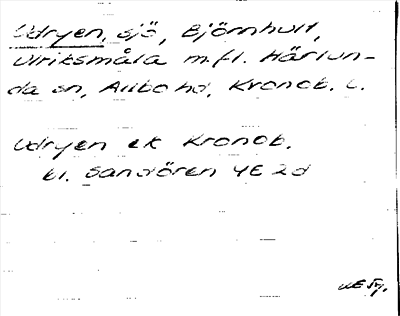 Udryen, sjö, Björnhult,
Ulriksmåla m.fl. Härlun-
da sn, Allbo hd, Kronob. l.
Udryen ek Kronob.
bl. Sandören 4E 2d